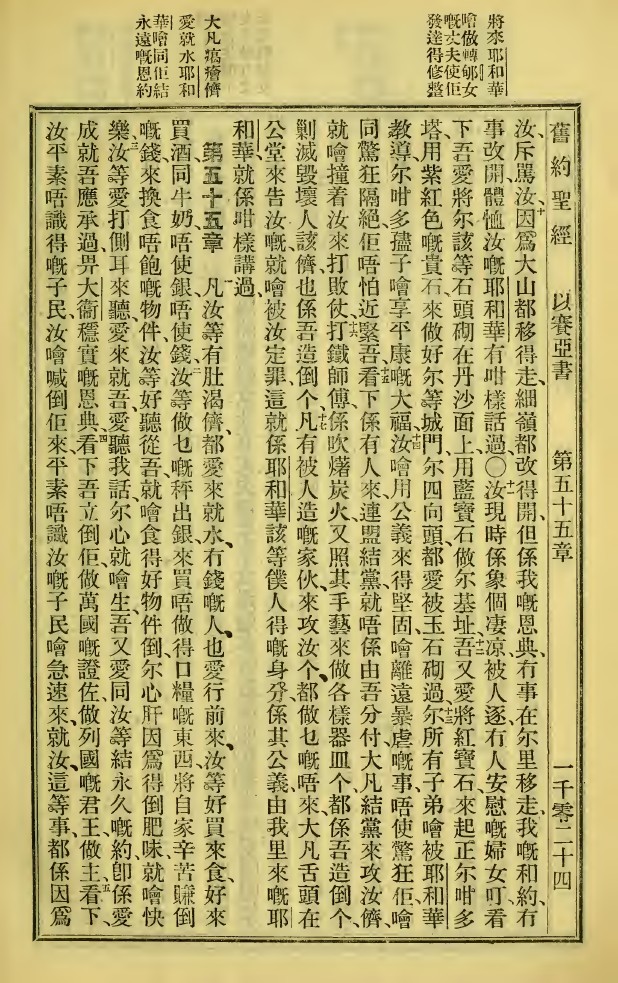 將來耶和華
噲做轉郇女
嘅丈夫使佢
發達得修整
愛就水耶和
華噲同佢結
永遠嘅恩約
舊約聖經 以賽亞書 第五十五章 一千零二十四
汝、斥罵汝、十因爲大山都移得走、細嶺都改得開、但係我嘅恩典、冇事在尔里移走、我嘅和約、冇
事改開、體恤汝嘅耶和華有咁樣話過、〇十一汝現時係象個凄凉、被人逐、冇人安慰嘅婦女、叮看
下吾愛將尔該等石頭砌在丹沙面上、用藍寶石做尔基址、十二吾又愛將紅寶石來起正尔咁多
塔、用紫紅色嘅貴石來做好尔等城門、尔四向頭都愛被玉石砌過、十三尔所有子弟噲被耶和華
教導、尔咁多孻子噲享平康嘅大福、十四汝噲用公義來得堅固、噲離遠暴虐嘅事、唔使驚狂、佢噲
同驚狂隔絕、佢唔怕近緊吾、十五看下係有人來連盟結黨、就唔係由吾分付、大凡結黨來攻汝儕、
就噲撞着汝來打敗仗、十六打鐵師傅、係吹爩炭火、又照其手藝來做各樣器皿个、都係吾造倒个、
剿滅毀壞人該儕也係吾造倒个、十七凡有被人造嘅家伙、來攻汝个、都做乜嘅唔來、大凡舌頭在
公堂來告汝嘅、就噲被汝定罪、這就係耶和華該等僕人得嘅身分、係其公義由我里來嘅、耶
和華就係咁樣講過、
第五十五章 一凡汝等有肚渴儕、都愛來就水、冇錢嘅人、也愛行前來、汝等好買來食、好來
買酒同牛奶、唔使銀、唔使錢、二汝等做乜嘅秤出銀來買唔做得口糧嘅東西、將自家辛苦賺倒
嘅錢來換食唔飽嘅物件、汝等好聽從吾、就噲食得好物件倒、尔心肝因爲得倒肥味、就噲快
樂、三汝等愛打側耳來聽、愛來就吾、愛聽我話、尔心就噲生、吾又愛同汝等結永久嘅約、卽係愛
成就吾應承過畀大衞穩實嘅恩典、四看下吾立倒佢做萬國嘅證佐、做列國嘅君王、做主、五看下、
汝平素唔識得嘅子民、汝噲喊倒佢來、平素唔識汝嘅子民、噲急速來就汝、這等事、都係因爲